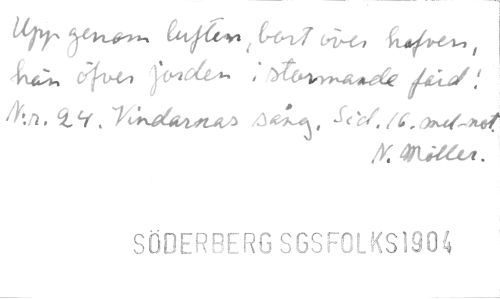 Upp genom luften, bort över hafven,
hän öfver jorden i stormande färd!
N:r. 24. Vindarnas sång. Sid. 16. mel-not.
N. Möller.
SÖDERBERG SGSFOLKS 1904